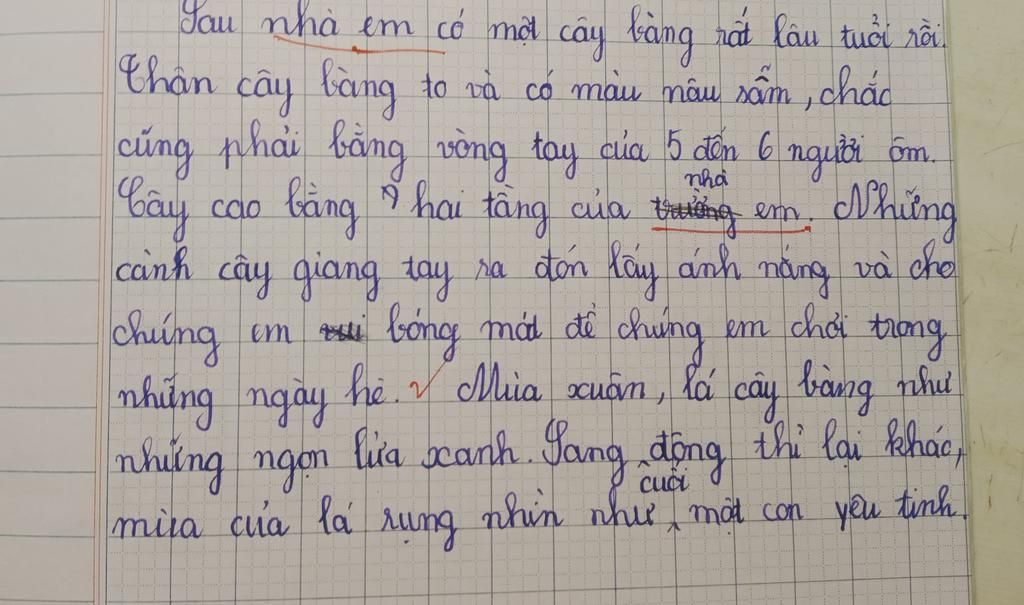 Sau nhà em có một cây bàng rất lâu tuổi rồi.
Thân cây bàng to và có màu nâu sẫm, chắc
cũng phải bằng vòng tay của 5 đến 6 người ôm.
nhà
Cây cao bằng hai tầng của trường em. Những
cành cây giang tay ra đón lấy ánh nắng và cho
chúng em bóng mát để chúng em chơi trong
những ngày hè. Mùa xuân, lá cây bàng như
những ngọn lửa xanh. Sang đông thì lại khác,
cuối
mùa của lá rụng nhìn như một con yêu tinh.